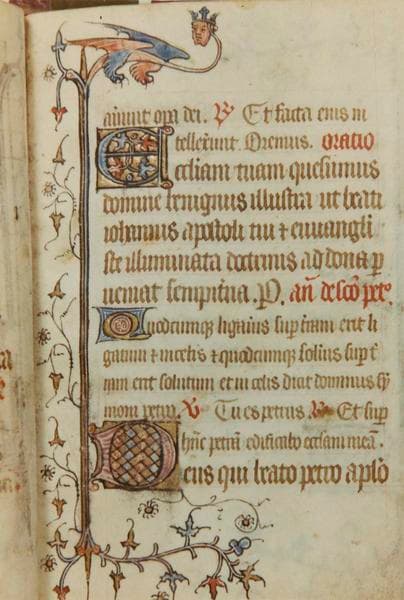 arunt opa dei. V Et facta eius in
tellexerunt. Oremus. oratio
Eccliam tuam quesumus
domine benignus illustra ut beati
iohannis apostoli tui et euuangli
ste illuminata doctrinis ad dona p
ueniat sempitna. P. an de sco petr.
Quodcumq ligauis sup tram erit li
gatum et in celis et quodcumq solius sup t
ram erit solutum et in celis dicit dominus sy
moni petro. V Tu es petrus R Et sup
hanc petra edificabo ecclam meam.
Deus qui beato petro aplo